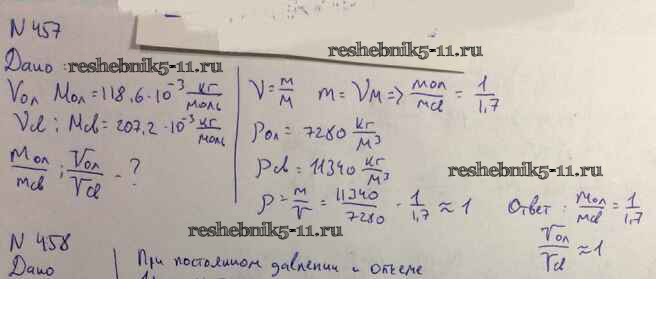 N 457
reshebnik5-11.ru
Дано: reshebnik5-11.ru
Vол Mол = 118,6·10⁻³ кг/моль
Vсв; Mсв = 207,2·10⁻³ кг/моль
mол/mсв; Vол/Vсв - ?
ν = m/M  m = νM => mол/mсв = 1/1,7
ρол = 7280 кг/м³
ρсв = 11340 кг/м³
reshebnik5-11.ru
ρ = m/V = 11340/7280 · 1/1,7 ≈ 1
Ответ: mол/mсв = 1/1,7
Vол/Vсв ≈ 1
reshebnik5-11.ru
N 458
Дано
При постоянном давлении и объеме